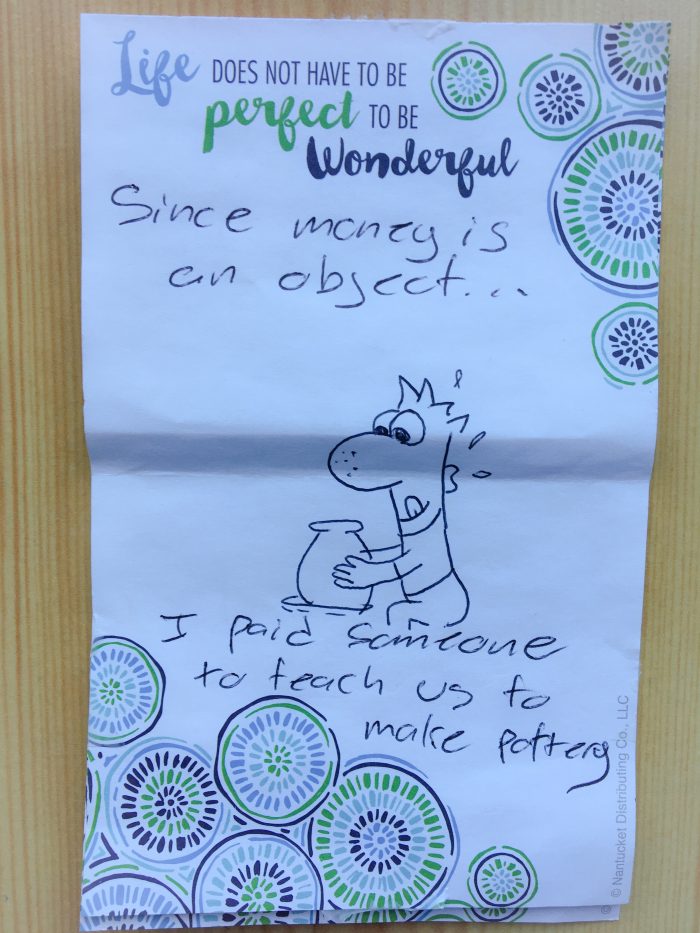 Life DOES NOT HAVE TO BE
perfect TO BE
Wonderful
Since money is
an object...
I paid someone
to teach us to
make pottery
© © Nantucket Distributing Co., LLC